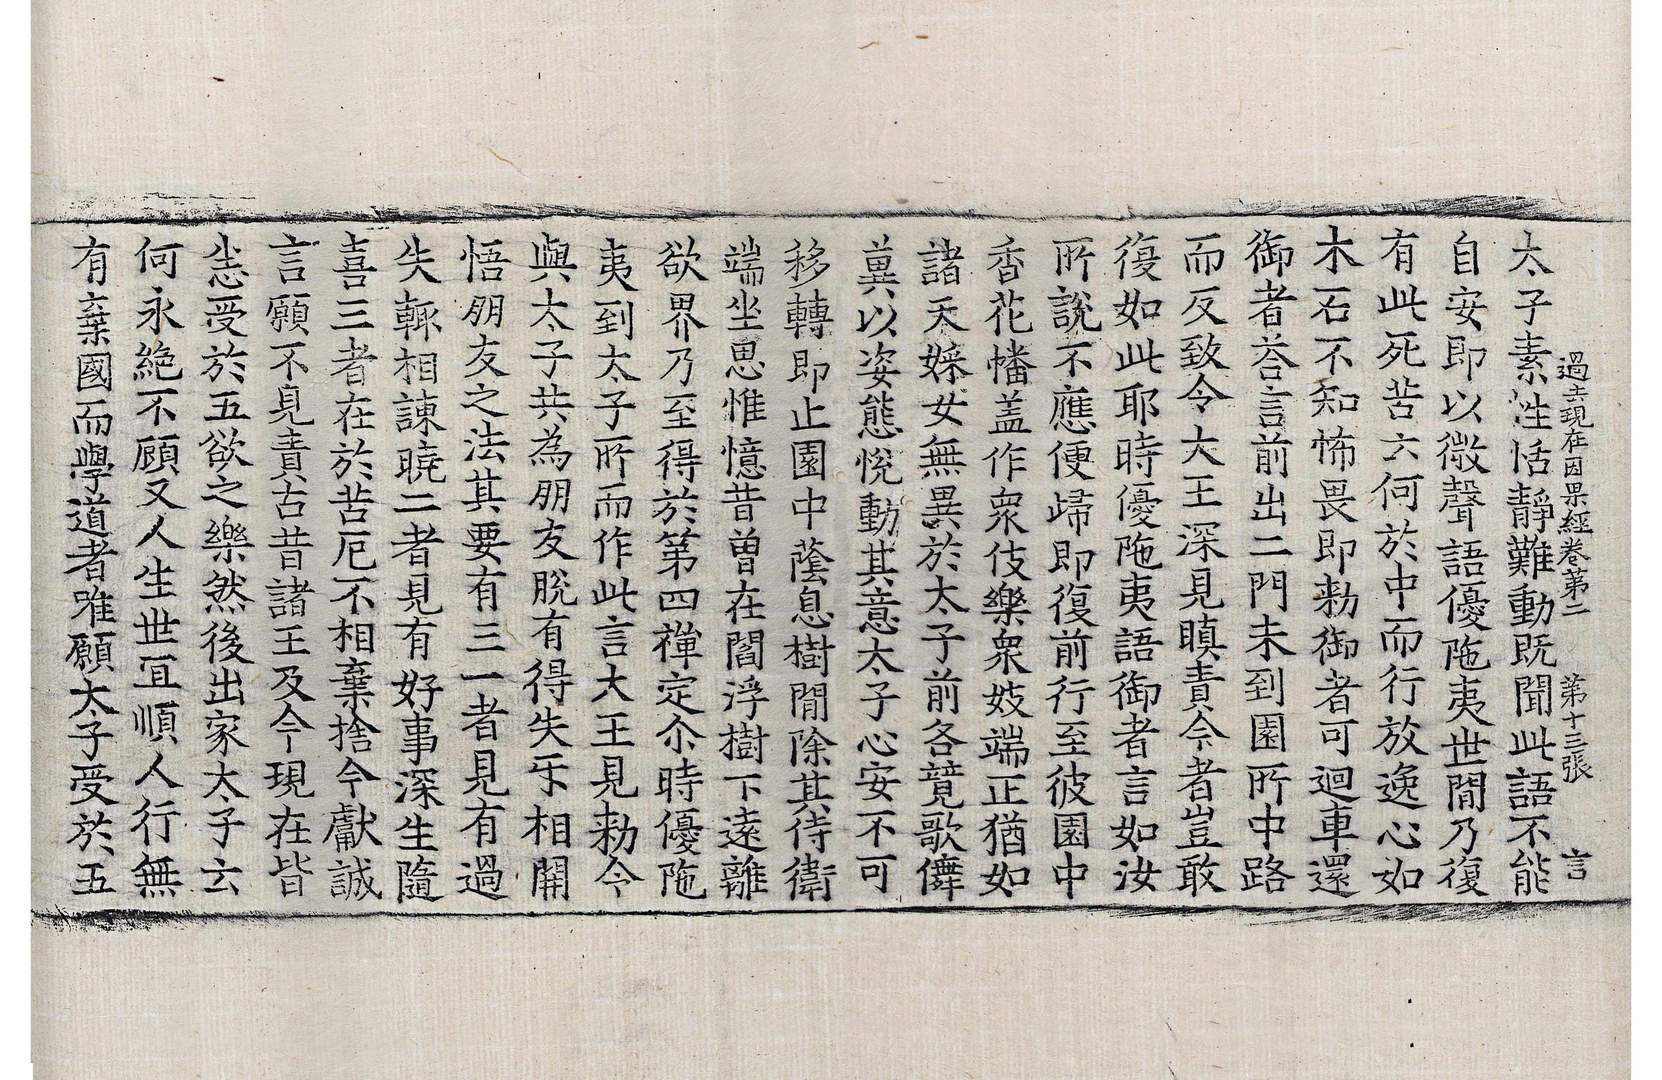 過去現在因果經卷第二 第十三張 言
太子素性恬靜難動既聞此語不能
自安即以微聲語優陁夷世閒乃復
有此死苦云何於中而行放逸心如
木石不知怖畏即勑御者可迴車還
御者荅言前出二門未到園所中路
而反致令大王深見瞋責今者豈敢
復如此耶時優陁夷語御者言如汝
所說不應便歸即復前行至彼園中
香花幡盖作衆伎樂衆妓端正猶如
諸天婇女無異於太子前各競歌儛
兾以姿態悅動其意太子心安不可
移轉即止園中蔭息樹閒除其侍衛
端坐思惟憶昔曾在閻浮樹下遠離
欲界乃至得於第四禪定尒時優陁
夷到太子所而作此言大王見勑令
與太子共為朋友脫有得失互相開
悟朋友之法其要有三一者見有過
失輒相諫曉二者見有好事深生隨
喜三者在於苦厄不相棄捨今獻誠
言願不見責古昔諸王及今現在皆
悉受於五欲之樂然後出家太子云
何永絕不顧又人生世宜順人行無
有棄國而學道者唯願太子受於五